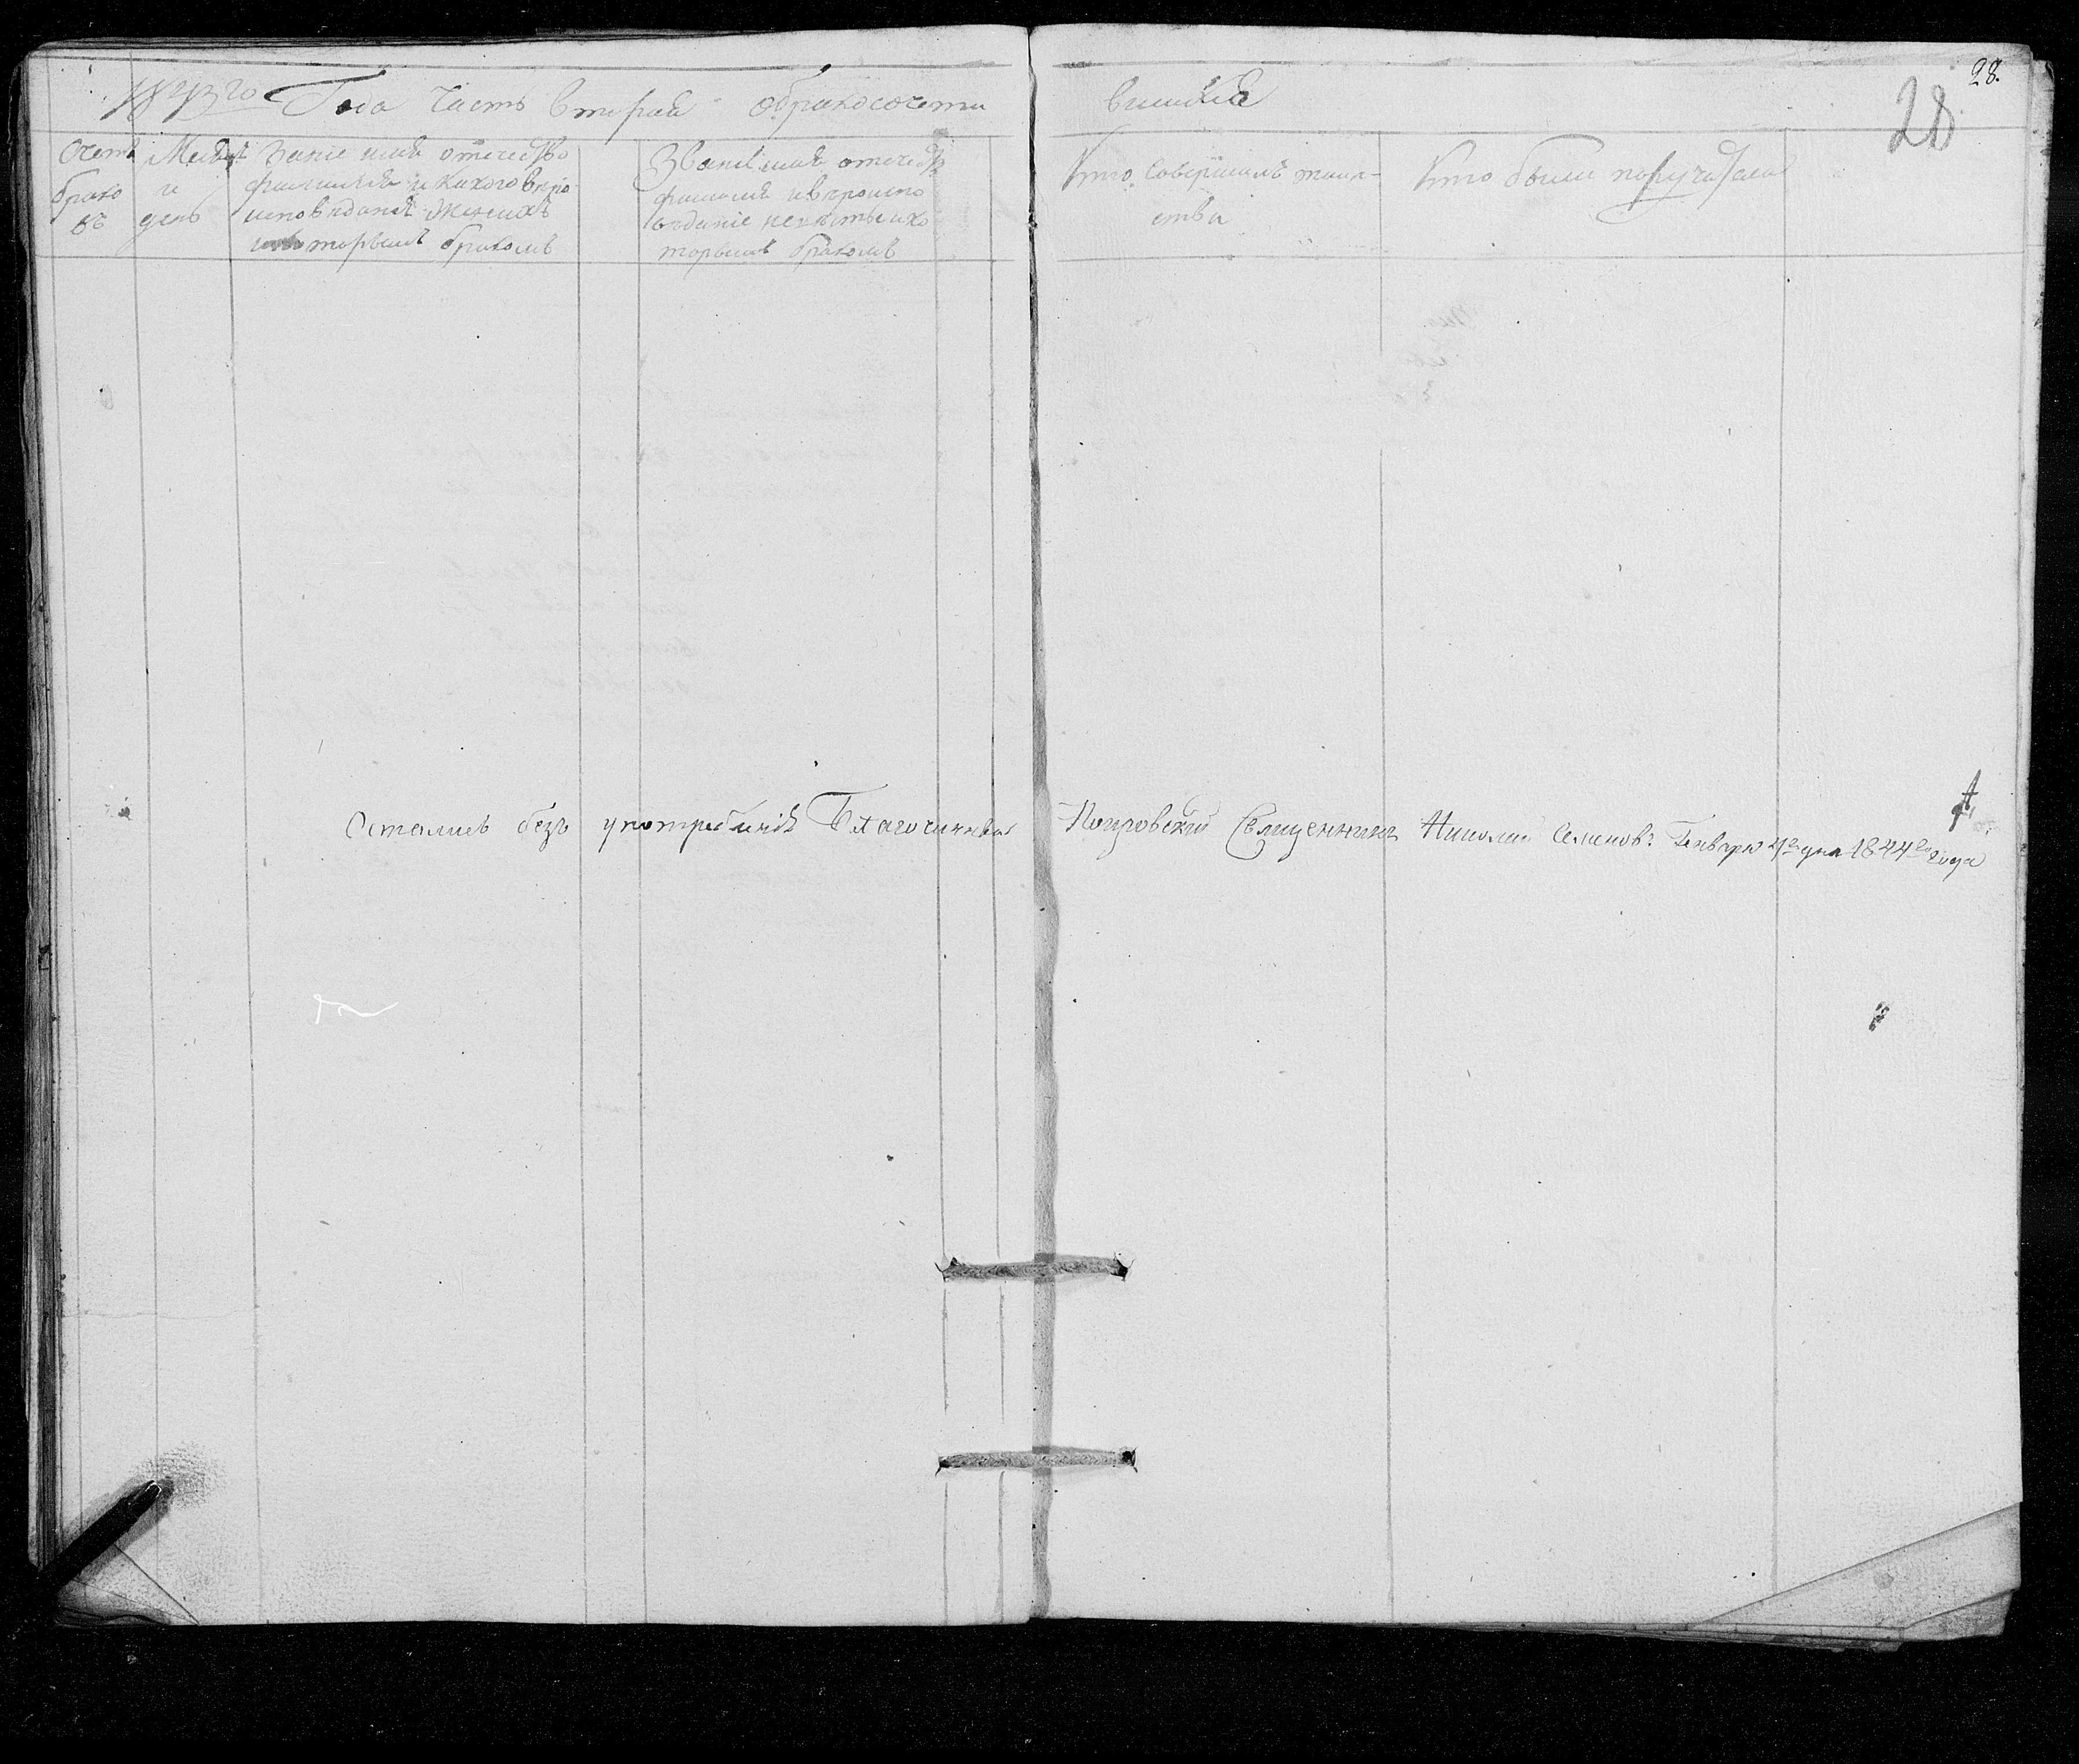 28.
28
1843го Года Часть вторая обракосочета
вшихся
Счетъ
брако
въ
Месяцъ
и
день
Званiе имя отечество
фамилия и какого веро
исповеданiя женихъ
и которымъ бракомъ
Званiе имя отечество
фамилия и вероиспо
веданiе невесты и ко
торымъ бракомъ
Кто совершалъ таин-
ства
Кто были поручатели
Осталисъ безъ употребленiя Благочинный Покровский Священникъ Николай Семеновъ Генваря 4го дня 1844го года